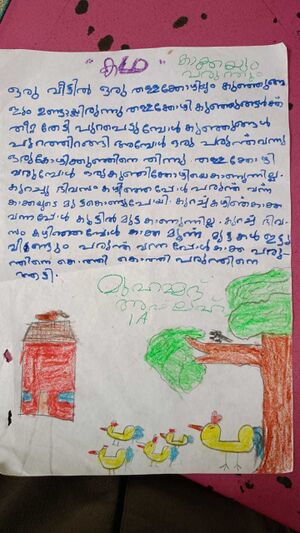 "കഥ"
കാക്കയും
പരുന്തും
ഒരു വീട്ടിൽ ഒരു തള്ളക്കോഴിയും കുഞ്ഞുങ്ങ
ളും ഉണ്ടായിരുന്നു തള്ളക്കോഴി കുഞ്ഞുങ്ങൾക്ക്
തീറ്റ തേടി പുറപ്പെടുമ്പോൾ കുഞ്ഞുങ്ങൾ
പുറത്തിറങ്ങി അപ്പോൾ ഒരു പരുന്ത് വന്നു
ഒരു കോഴിക്കുഞ്ഞിനെ തിന്നു തള്ളക്കോഴി
വരുമ്പോൾ ഒരു കുഞ്ഞിക്കോഴിയെ കാണുന്നില്ല.
കുറച്ചു ദിവസം കഴിഞ്ഞപ്പോൾ പരുന്ത് വന്ന്
കാക്കയുടെ മുട്ട കൊണ്ടുപോയി. കുറച്ച് കഴിഞ്ഞ് കാക്ക
വന്നപ്പോൾ കൂട്ടിൽ മുട്ട കാണുന്നില്ല. കുറച്ചു ദിവ
സം കഴിഞ്ഞപ്പോൾ കാക്ക മുട്ടകൾ ഇട്ടു
വീണ്ടും പരുന്ത് വന്നപ്പോൾ കാക്ക പരു
ന്തിനെ കൊത്തി കൊത്തി പരുന്തിനെ
മുഹമ്മദ്
1A